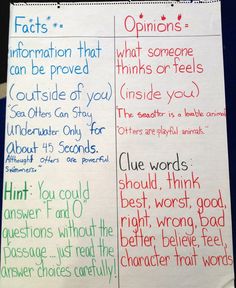 Facts
information that
can be proved
(outside of you)
"Sea Otters Can Stay
Underwater Only for
About 45 Seconds.
Although otters are powerful
swimmers."
Hint: You could
answer F and O
questions without the
passage...just read the
answer choices carefully!
Opinions
what someone
thinks or feels
(inside you)
The sea otter is a lovable animal
"Otters are playful animals."
Clue words:
should, think
best, worst, good,
right, wrong, bad
better, believe, feel,
character trait words